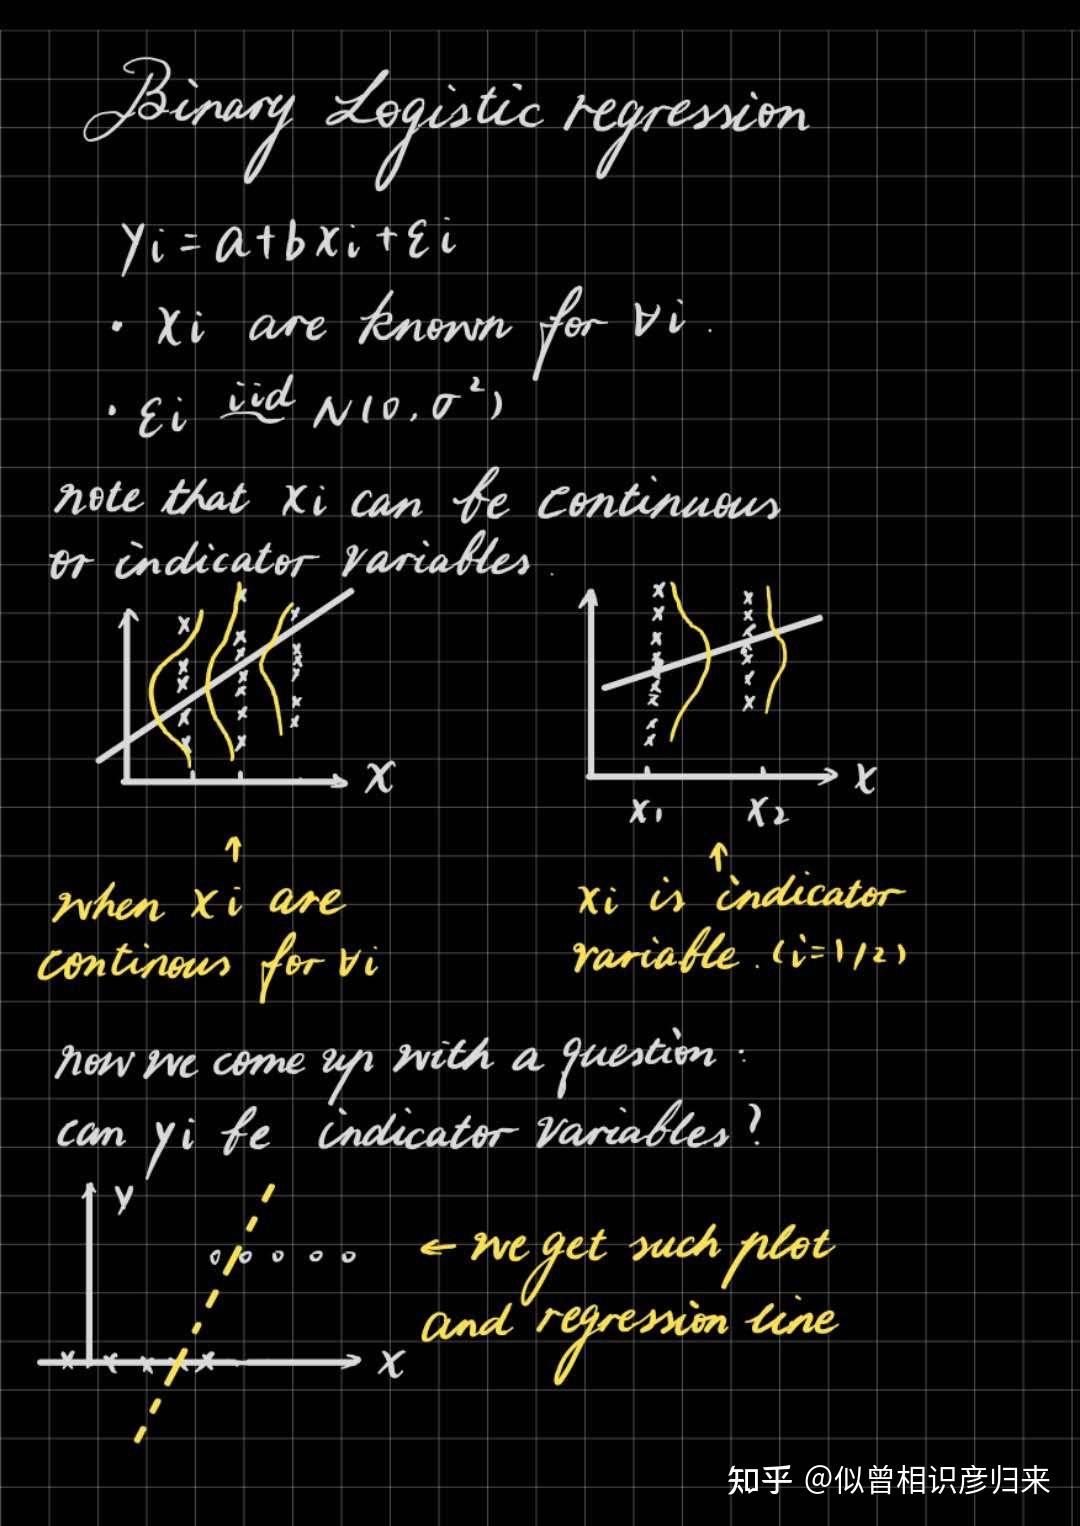 Binary Logistic regression
yi = a+bxi+εi
· xi are known for ∀i.
· εi iid N(0,σ²)
note that xi can be continuous
or indicator variables.
x
x
x1 x2
↑
when xi are
continous for ∀i
↑
xi is indicator
variable. (i=1/2)
now we come up with a question:
can yi be indicator variables?
y
x
← we get such plot
and regression line
知乎 @似曾相识彦归来